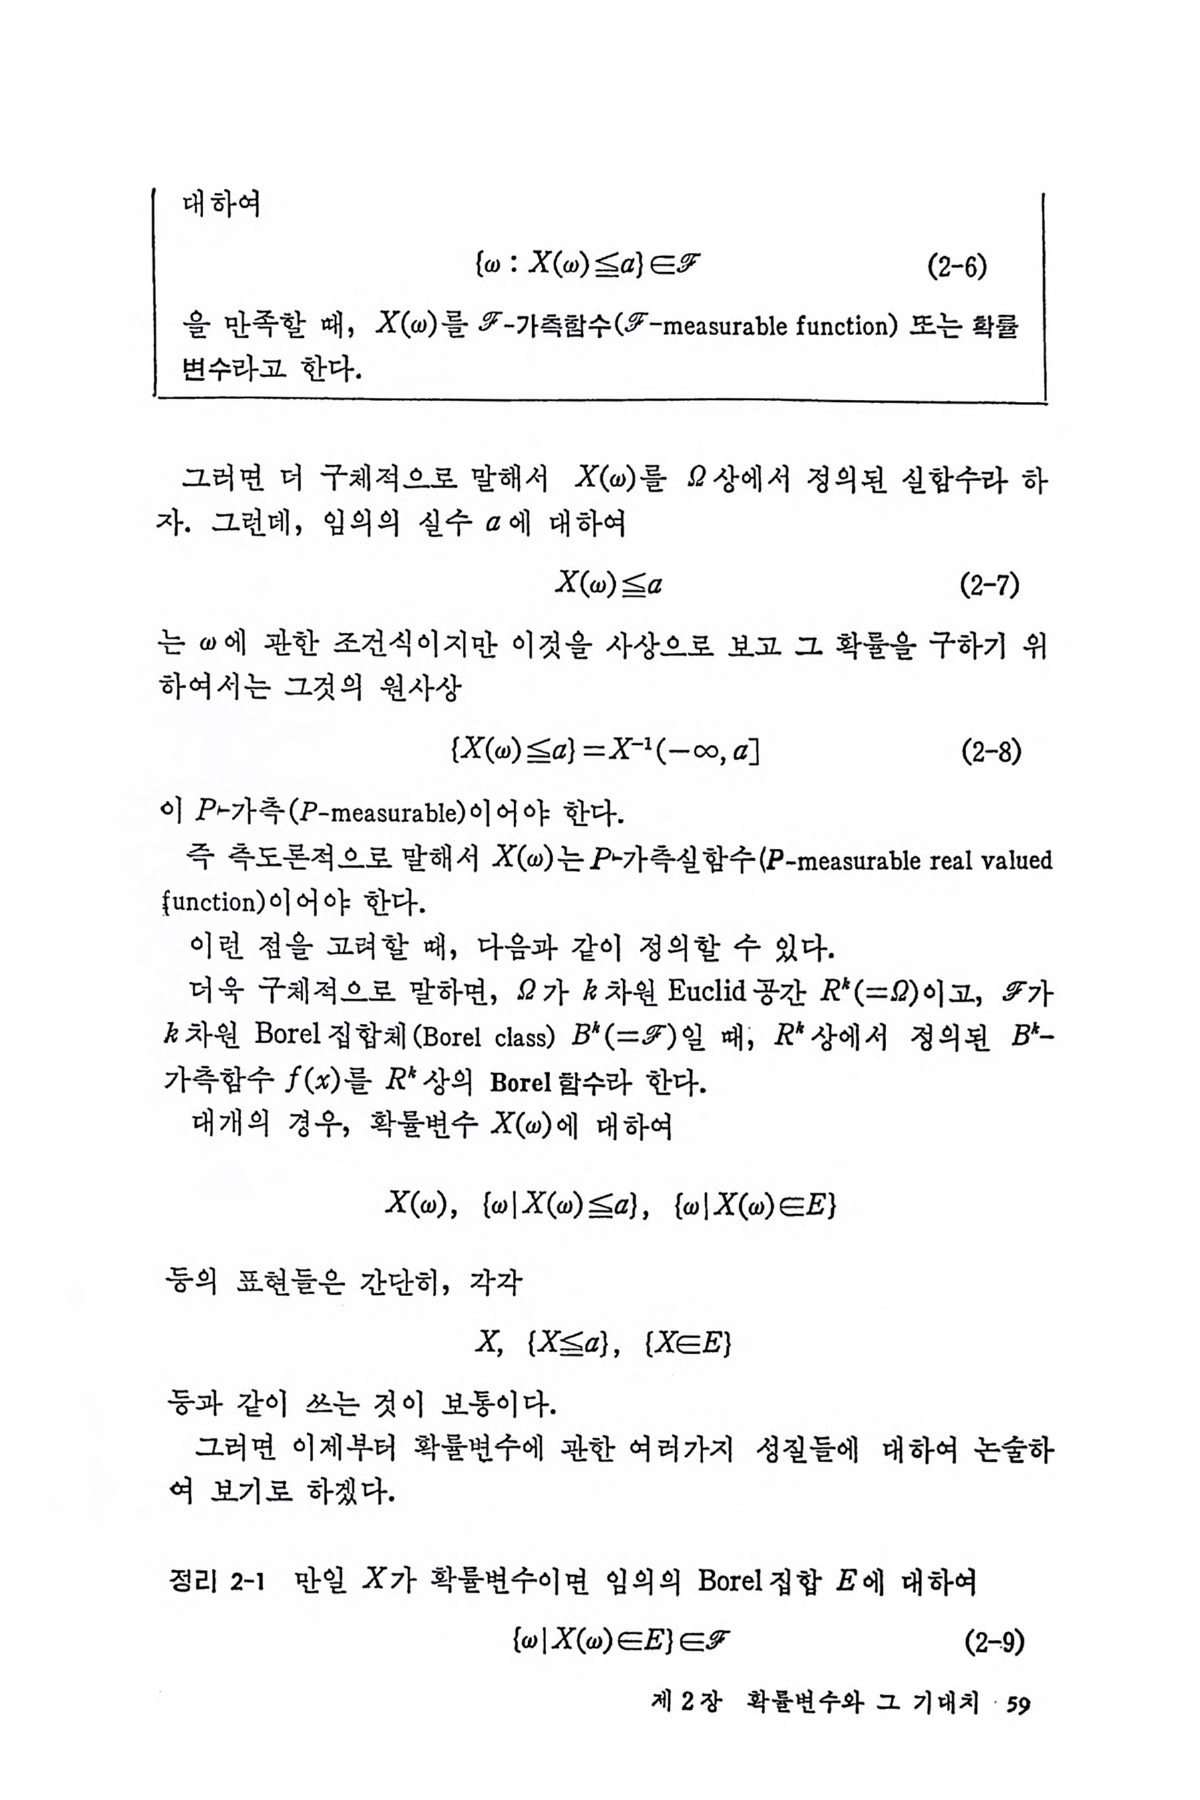 대하여
{ω : X(ω)≦a}∈ℱ (2-6)
을 만족할 때, X(ω)를 ℱ-가측함수(ℱ-measurable function) 또는 확률
변수라고 한다.
그러면 더 구체적으로 말해서 X(ω)를 Ω상에서 정의된 실함수라 하
자. 그런데, 임의의 실수 a에 대하여
X(ω)≦a (2-7)
는 ω에 관한 조건식이지만 이것을 사상으로 보고 그 확률을 구하기 위
하여서는 그것의 원사상
{X(ω)≦a}=X⁻¹(−∞, a] (2-8)
이 P-가측(P-measurable)이어야 한다.
즉 측도론적으로 말해서 X(ω)는 P-가측실함수(P-measurable real valued
function)이어야 한다.
이런 점을 고려할 때, 다음과 같이 정의할 수 있다.
더욱 구체적으로 말하면, Ω가 k차원 Euclid공간 Rᵏ(=Ω)이고, ℱ가
k차원 Borel집합체(Borel class) Bᵏ(=ℱ)일 때, Rᵏ상에서 정의된 Bᵏ-
가측함수 f(x)를 Rᵏ상의 Borel함수라 한다.
대개의 경우, 확률변수 X(ω)에 대하여
X(ω), {ω|X(ω)≦a}, {ω|X(ω)∈E}
등의 표현들은 간단히, 각각
X, {X≦a}, {X∈E}
등과 같이 쓰는 것이 보통이다.
그러면 이제부터 확률변수에 관한 여러가지 성질들에 대하여 논술하
여 보기로 하겠다.
정리 2-1 만일 X가 확률변수이면 임의의 Borel집합 E에 대하여
{ω|X(ω)∈E}∈ℱ (2-9)
제 2 장 확률변수와 그 기대치 · 59